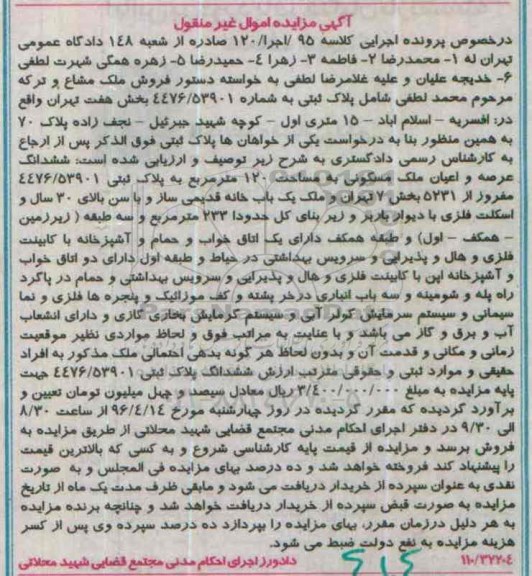 آگهی مزایده اموال غیر منقول
درخصوص پرونده اجرایی کلاسه ۹۵ /اجرا/۱۲۰ صادره از شعبه ۱۴۸ دادگاه عمومی
تهران له ۱- محمدرضا ۲- فاطمه ۳- زهرا ۴- حمیدرضا ۵- زهره همگی شهرت لطفی
۶- خدیجه علیان و علیه غلامرضا لطفی به خواسته دستور فروش ملک مشاع و ترکه
مرحوم محمد لطفی شامل پلاک ثبتی به شماره ۴۴۷۶/۵۳۹۰۱ بخش هفت تهران واقع
در: افسریه – اسلام اباد – ۱۵ متری اول – کوچه شهید جبرئیل – نجف زاده پلاک ۷۰
به همین منظور بنا به درخواست یکی از خواهان ها پلاک ثبتی فوق الذکر پس از ارجاع
به کارشناس رسمی دادگستری به شرح زیر توصیف و ارزیابی شده است: ششدانگ
عرصه و اعیان ملک مسکونی به مساحت ۱۲۰ مترمربع به پلاک ثبتی ۴۴۷۶/۵۳۹۰۱
مفروز از ۵۲۳۱ بخش ۷ تهران و ملک یک باب خانه قدیمی ساز و با سن بالای ۳۰ سال و
اسکلت فلزی با دیوار باربر و زیر بنای کل حدودا ۲۳۳ مترمربع و سه طبقه ( زیرزمین
– همکف – اول) و طبقه همکف دارای یک اتاق خواب و حمام و آشپزخانه با کابینت
فلزی و هال و پذیرایی و سرویس بهداشتی در حیاط و طبقه اول دارای دو اتاق خواب
و آشپزخانه اپن با کابینت فلزی و هال و پذیرایی و سرویس بهداشتی و حمام در پاگرد
راه پله و شومینه و سه باب انباری درخر پشته و کف موزائیک و پنجره ها فلزی و نما
سیمانی و سیستم سرمایش کولر آبی و سیستم گرمایش بخاری گازی و دارای انشعاب
آب و برق و گاز می باشد و با عنایت به مراتب فوق و لحاظ مواردی نظیر موقعیت
زمانی و مکانی و قدمت آن و بدون لحاظ هر گونه بدهی احتمالی ملک مذکور به افراد
حقیقی و موارد ثبتی و حقوقی مترتب ارزش ششدانگ پلاک ثبتی ۴۴۷۶/۵۳۹۰۱ جهت
پایه مزایده به مبلغ ۳/۴۰۰/۰۰۰/۰۰۰ ریال معادل سیصد و چهل میلیون تومان تعیین و
برآورد گردیده که مقرر گردیده در روز چهارشنبه مورخ ۹۶/۴/۱۴ از ساعت ۸/۳۰
الی ۹/۳۰ در دفتر اجرای احکام مدنی مجتمع قضایی شهید محلاتی از طریق مزایده به
فروش برسد و مزایده از قیمت پایه کارشناسی شروع و به کسی که بالاترین قیمت
را پیشنهاد کند فروخته خواهد شد و ده درصد بهای مزایده فی المجلس و به صورت
نقدی به عنوان سپرده از خریدار دریافت می شود و مابقی ظرف مدت یک ماه از تاریخ
مزایده به صورت قبض سپرده از خریدار دریافت خواهد شد و چنانچه برنده مزایده
به هر دلیل درزمان مقرر، بهای مزایده را بپردازد ده درصد سپرده وی پس از کسر
هزینه مزایده به نفع دولت ضبط می شود.
۱۱۰/۳۷۲۰۴ دادورز اجرای احکام مدنی مجتمع قضایی شهید محلاتی